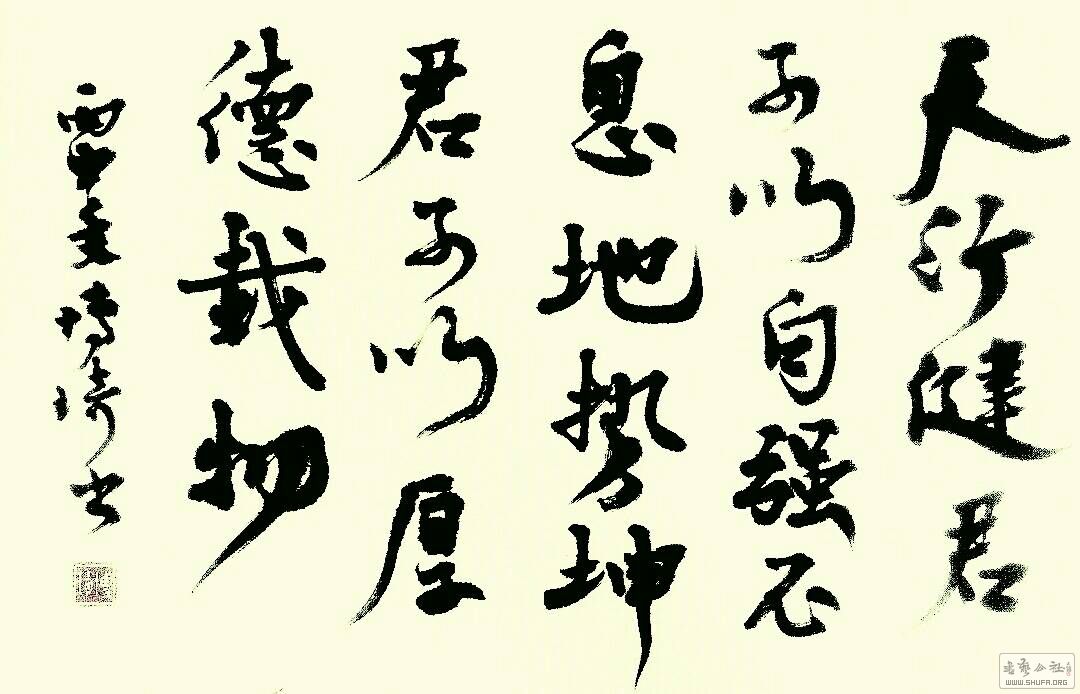 天行健君
子以自强不
息地势坤
君子以厚
德載物
丙申年书
書藝公社
WWW.SHUFA.ORG